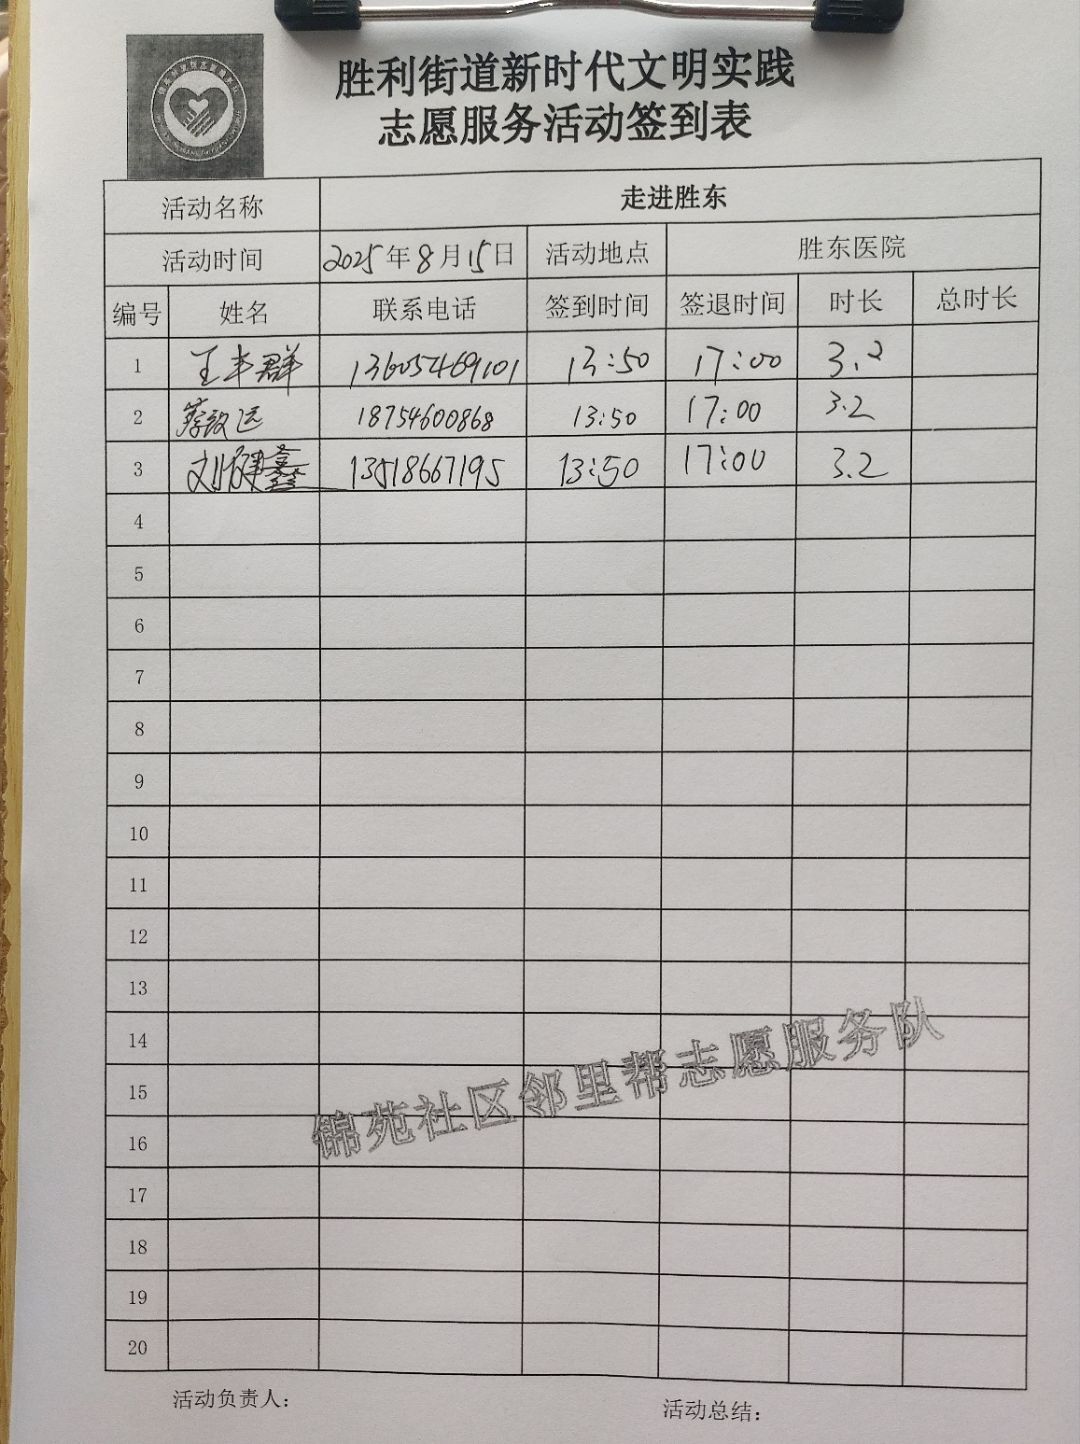 胜利街道新时代文明实践
志愿服务活动签到表
活动名称 走进胜东
活动时间 2025年8月15日 活动地点 胜东医院
编号 姓名 联系电话 签到时间 签退时间 时长 总时长
1 王丰群 13605469101 13:50 17:00 3.2
2 蔡致远 18754600868 13:50 17:00 3.2
3 刘健鑫 13518667195 13:50 17:00 3.2
4
5
6
7
8
9
10
11
12
13
14
15
16
17
18
19
20
锦苑社区邻里帮志愿服务队
活动负责人: 活动总结: